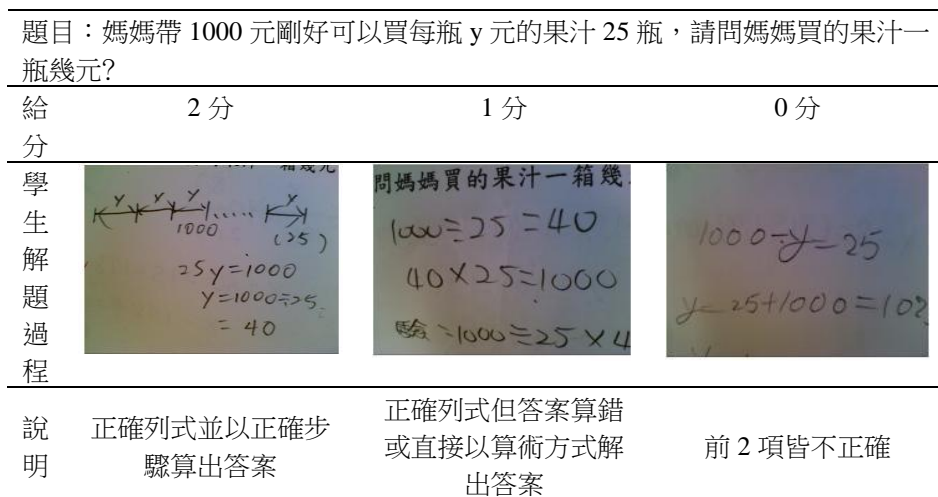 題目：媽媽帶 1000 元剛好可以買每瓶 y 元的果汁 25 瓶，請問媽媽買的果汁一
瓶幾元?
給分
2 分
1 分
0 分
學生解題過程
y y y y
1000
(25)
25y=1000
y=1000÷25
=40
問媽媽買的果汁一箱幾
1000÷25=40
40×25=1000
驗:1000=25×4
1000÷y=25
y=25+1000=102
說明
正確列式並以正確步
驟算出答案
正確列式但答案算錯
或直接以算術方式解
出答案
前 2 項皆不正確